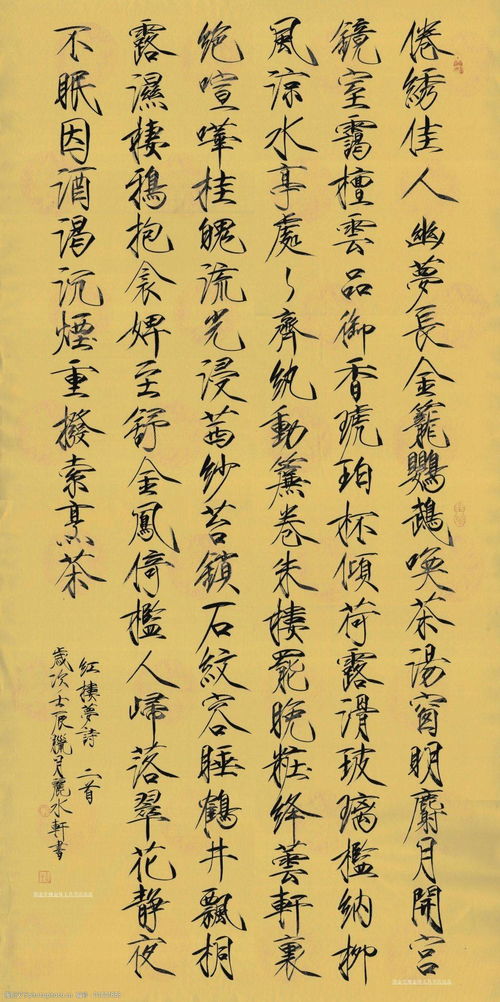 倦綉佳人幽夢長金籠鸚鵡喚茶湯窗明麝月開宮
鏡室靄檀雲品御香琥珀杯傾荷露滑玻璃檻納柳
風涼水亭處々齊紈動簾卷朱樓罷晚粧絳蕓軒裏
絶喧嘩桂魄流光浸茜紗苔鎖石紋容睡鶴井飄桐
露濕棲鴉抱衾婢至舒金鳳倚檻人歸落翠花靜夜
不眠因酒渴沉煙重撥索烹茶
紅樓夢詩 二首
歲次壬辰臘月麗水軒書